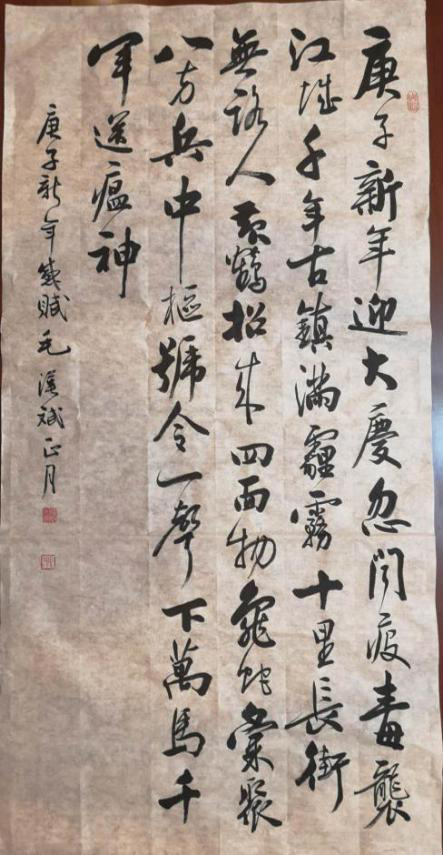 庚子新年迎大慶忽聞疫毒襲
江城千年古鎮滿霾霧十里長街
無路人黃鶴招來四面物龜蛇彙聚
八方兵中樞號令一聲下萬馬千
軍送瘟神
庚子新年感賦毛斌正月